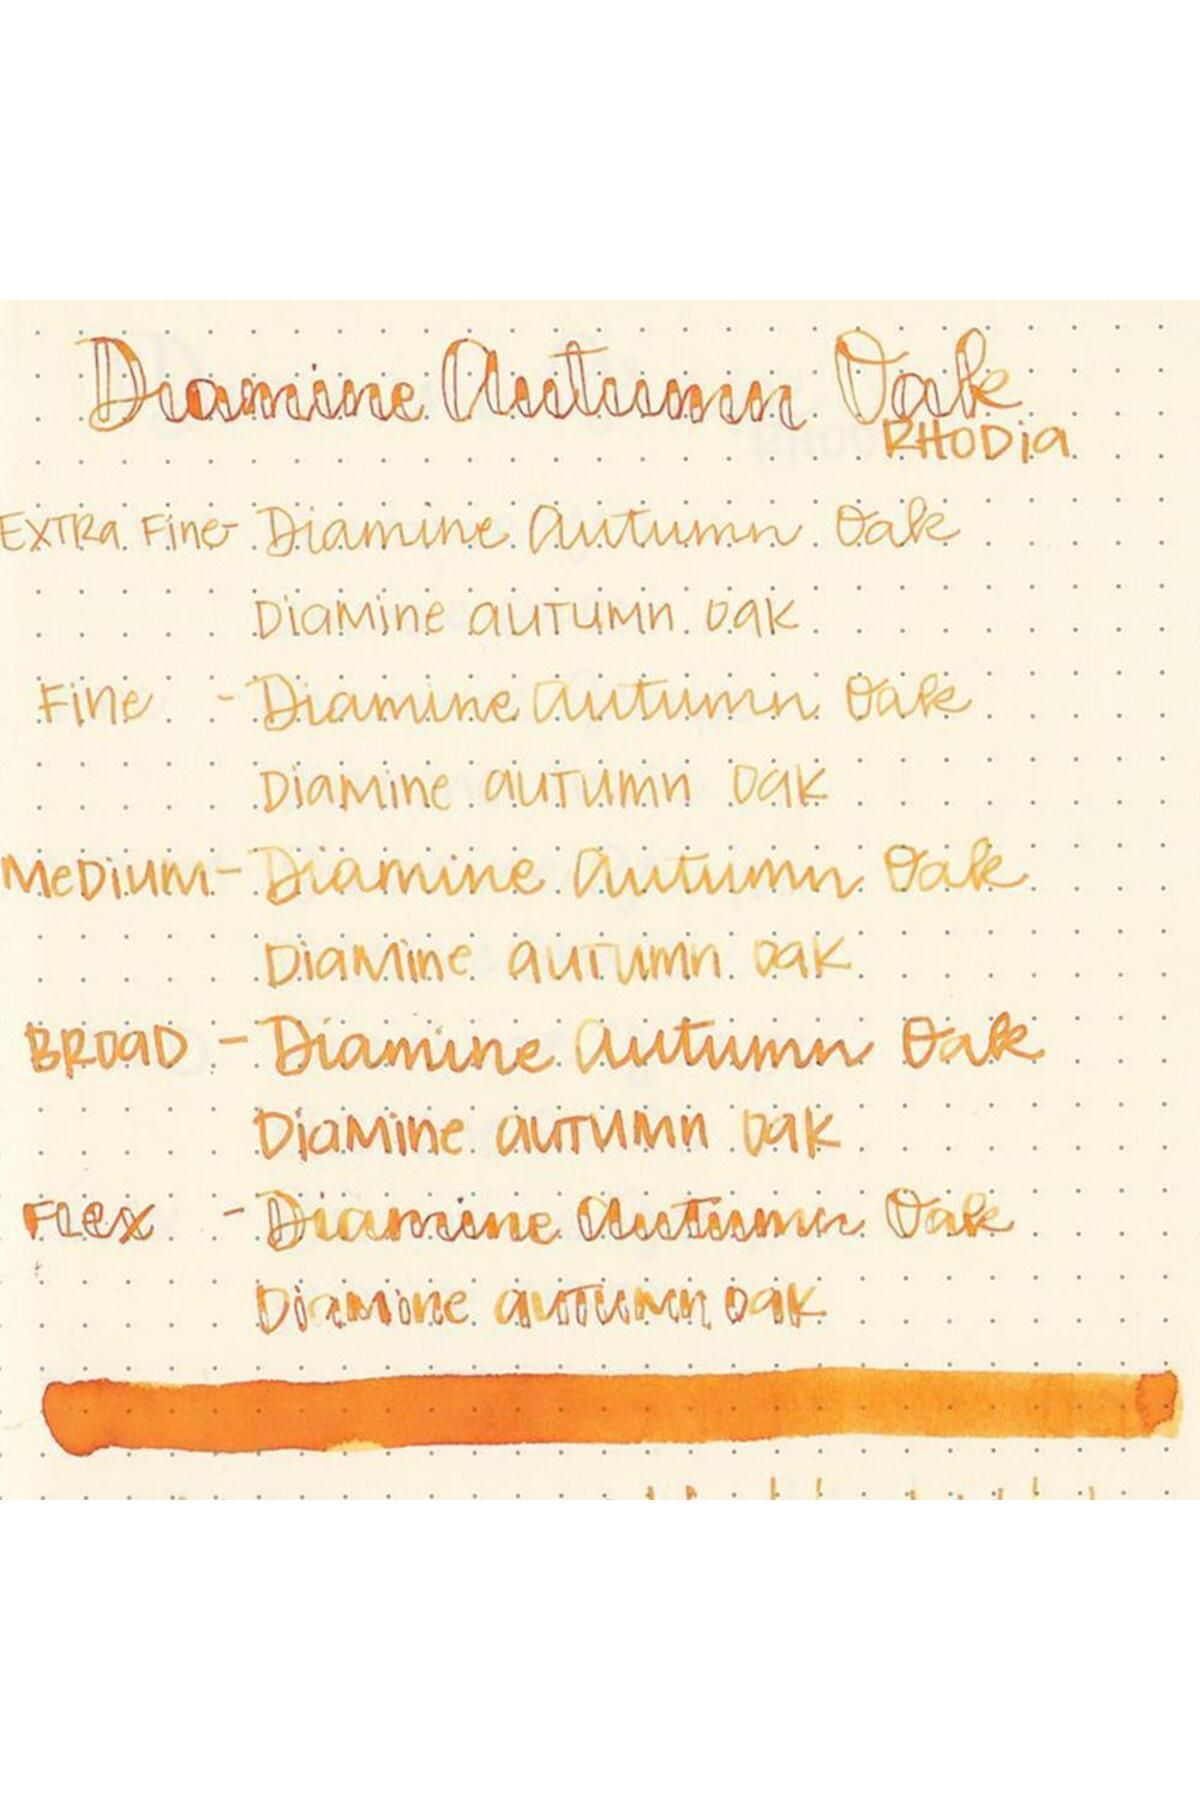 Diamine Autumn Oak
RHODia
EXTRa Fine- Diamine Autumn Oak
Diamine auTumn oak
Fine - Diamine Autumn Oak
Diamine auTumn oak
Medium- Diamine Autumn Oak
Diamine auTumn oak
BROaD - Diamine Autumn Oak
Diamine auTumn oak
FLex - Diamine Autumn Oak
Diamine auTumn oak